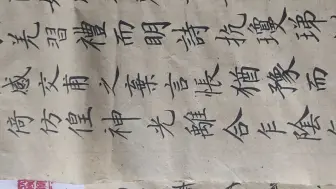 羌習禮而明詩抗瓊珶
感交甫之棄言悵猶豫而
倚仿偟神光離合乍陰